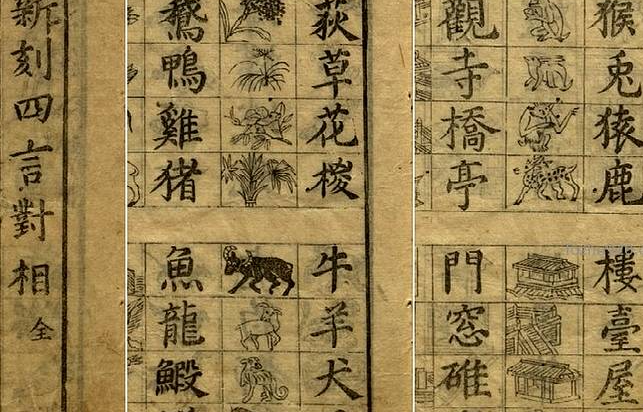 新刻四言對相 全
荻草花椶
鵝鴨雞猪
牛羊犬
魚龍鰕
猴兎猿鹿
觀寺橋亭
樓臺屋
門窓碓